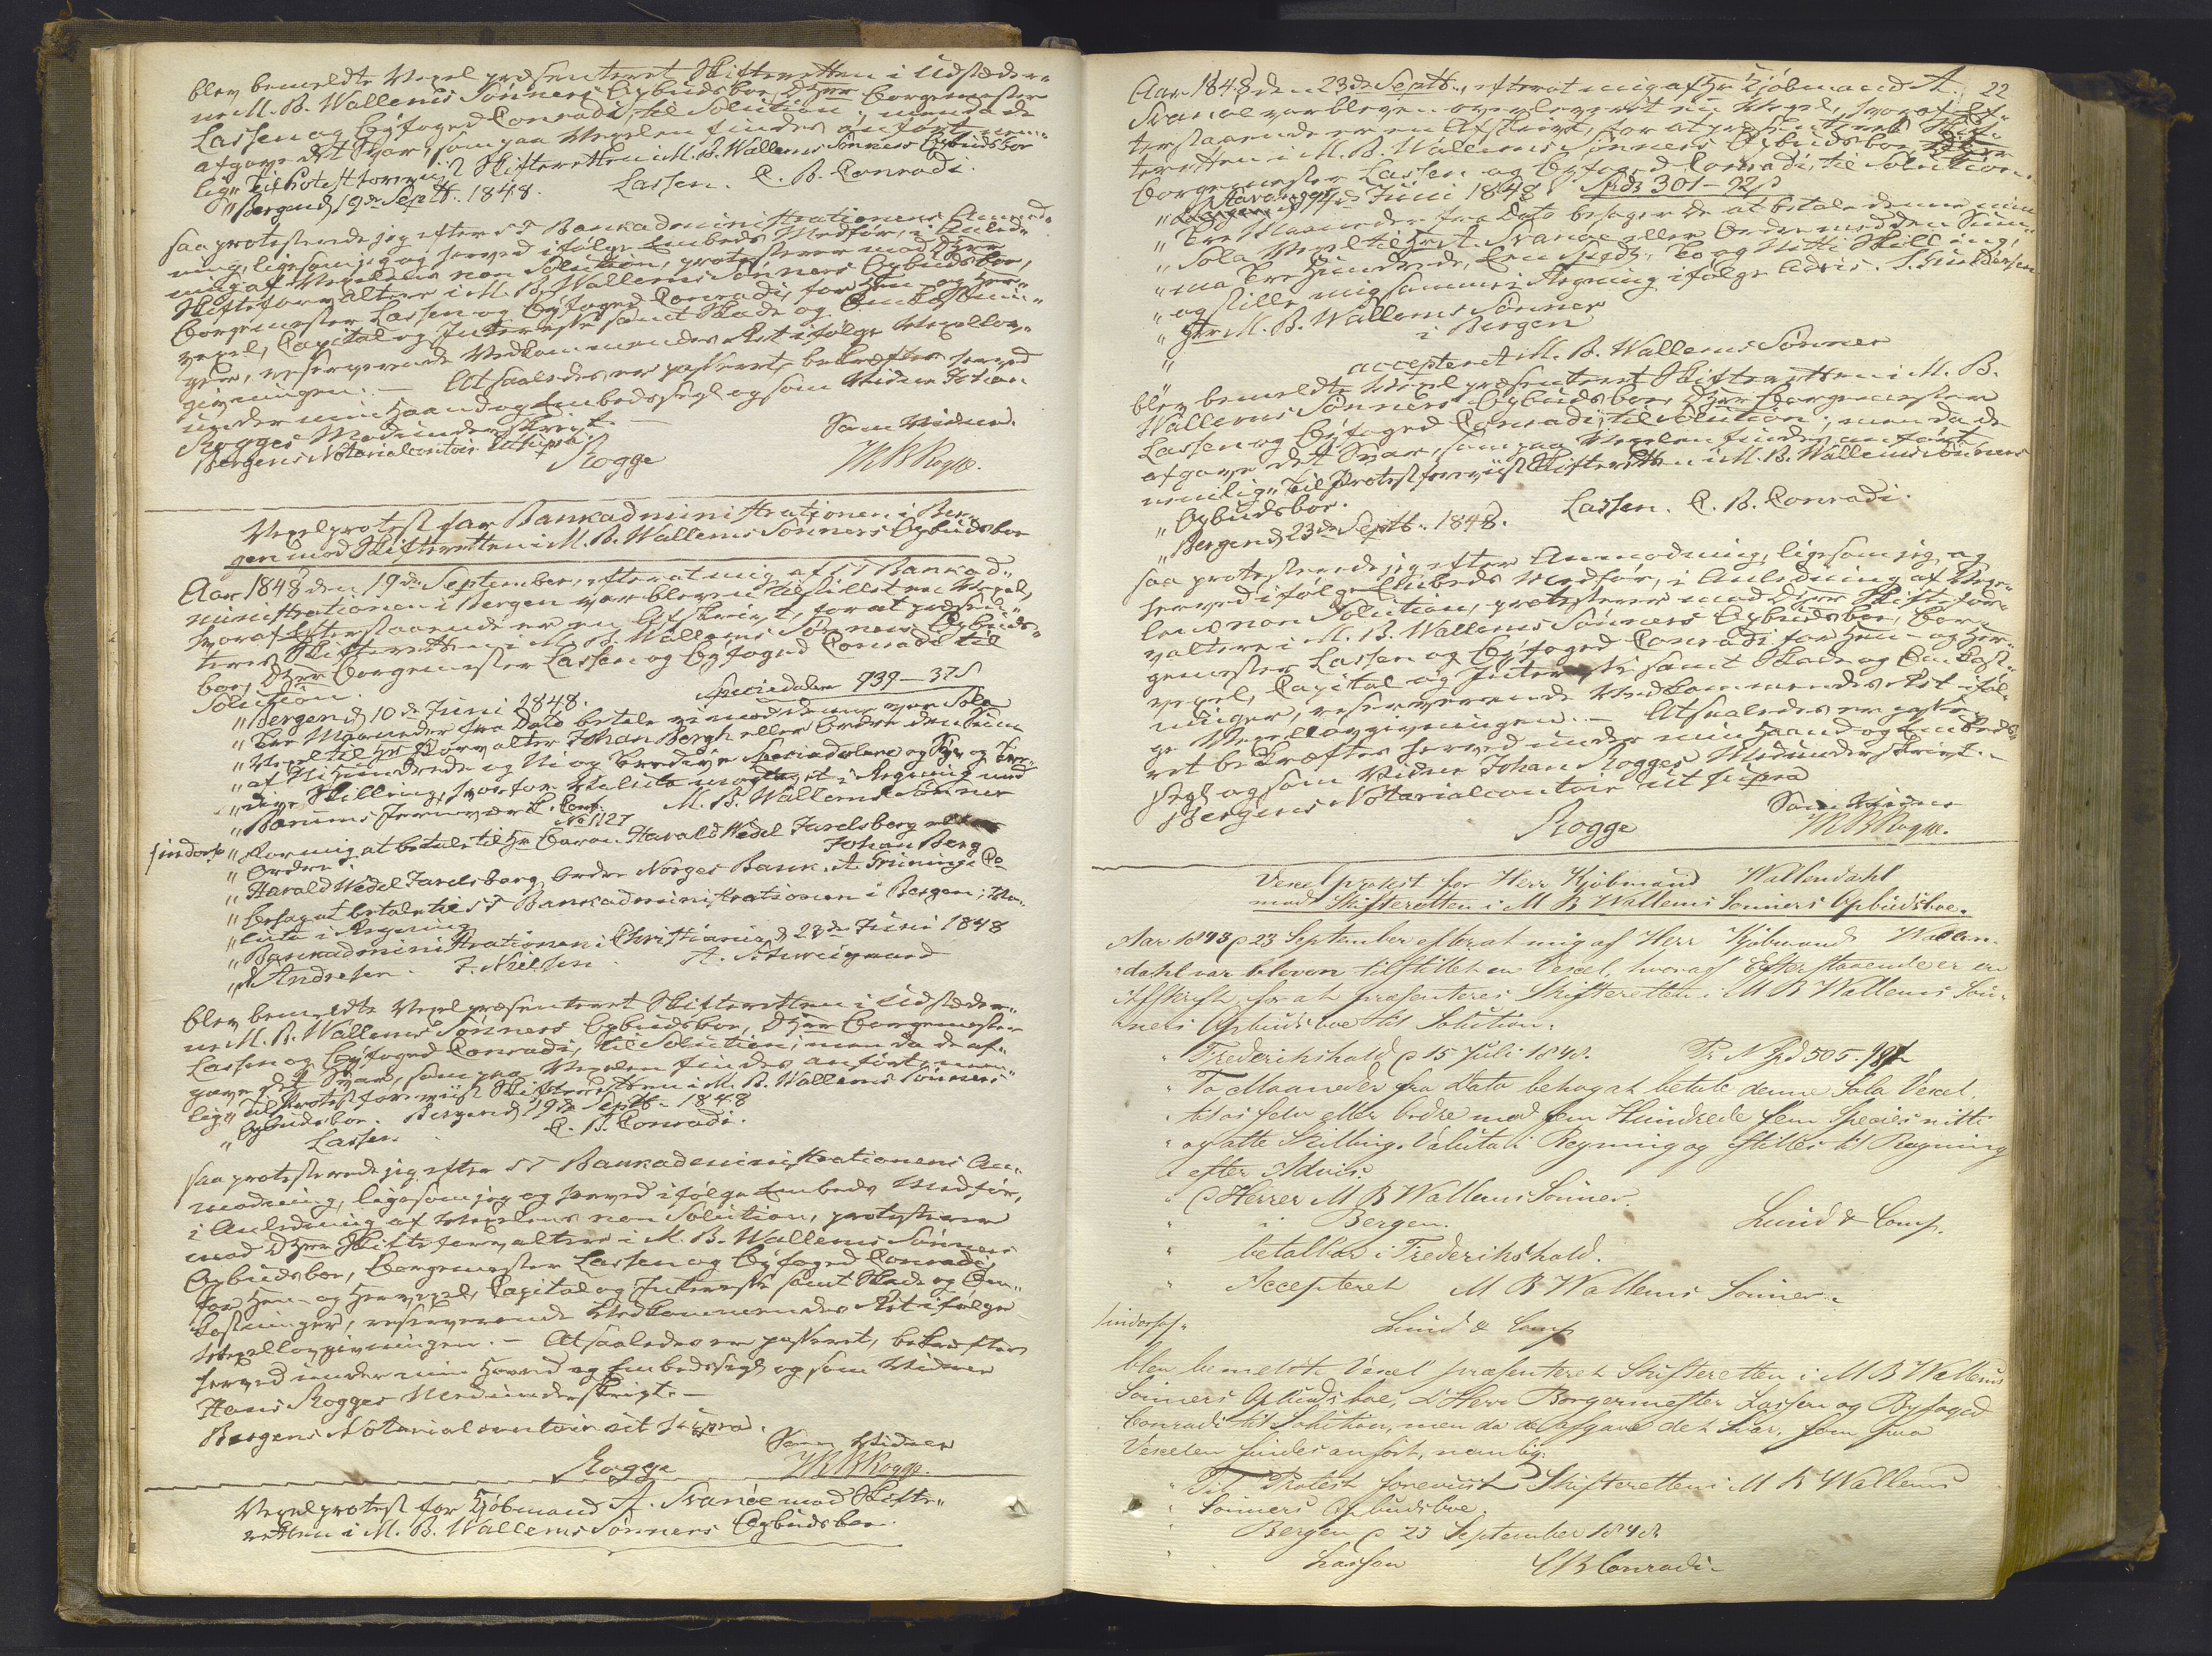 blev bemeldte Vexel præsenteret Skifteretten i Udstæder-
ne M. B. Wallems Sønners Opbudsboe, DHrr Borgemester
Lassen og Byfoged Conradi til Solution, men da de
afgave det Svar, som paa Vexelen findes anført, nem-
lig "Til Protest foreviist Skifteretten i M. B. Wallems Sønners Opbudsbor
"Bergen d. 19de Septb. 1848. Lassen. C. B. Conradi.
saa protesterede jeg efter Bankadministrationens Anmod-
ning, ligesom jeg og herved ifølge Embeds Medfør, i Anled-
ning af Vexelens non Solution, protesterer mod DHrr
Skifteforvaltere i M. B. Wallems Sønners Opbudsboe,
Borgemester Lassen og Byfoged Conradi, for Hen- og Her-
vexel, Capital og Interesse samt Skade og Omkostnin-
ger, reserverende Vedkommendes Ret ifølge Vexellov-
givningen. – At saaledes er passeret, bekræftes herved
under min Haand og Embedssegl og som Vidne Johan
Rogges Medunderskrift. –
Bergens Notarialcontoir ut supra. Som Vidne.
Rogge
Vexelprotest for Bankadministrationen i Ber-
gen mod Skifteretten i M. B. Wallems Sønners Opbudsboe
Aar 1848 den 19de September, efterat mig af Bankad-
ministrationen i Bergen var bleven tilstillet en Vexel,
hvoraf Efterstaaende er en Afskrivt, for at præsen-
teres Skifteretten i M. B. Wallems Sønners Opbuds-
boe, DHrr Borgemester Lassen og Byfoged Conradi til
Solution.
"Bergen d. 10de Juni 1848. Speciedaler 939–37 s
"Tre Maaneder fra Dato betale vi mod denne vor Sola
"Vexel til Hr Forvalter Johan Bergh eller Ordre den Sum
"af Nihundrede og Ni og Tredive Speciedalere og Syv og Tre-
"dive Skilling, hvorfor Valuta modtaget i Regning med
"Bærums Jernværk. M. B. Wallems Sønner
No 1127
/indors/ "For mig at betale til Hr Baron Harald Wedel Jarelsberg eller
"Ordre Johan Berg
"Harald Wedel Jarelsberg Ordre Norges Bank. A. Grüning & Co
"behag at betale til Bankadministrationen i Bergen; Va-
"luta i Regning
"Bankadministrationen i Christiania d. 23de Juni 1848
"N. Andresen. J. Nielsen. A. Schweigaard
blev bemeldte Vexel præsenteret Skifteretten i Udstæder-
ne M. B. Wallems Sønners Opbudsboe, DHrr Borgemester
Lassen og Byfoged Conradi, til Solution; men da de af-
gave det Svar, som paa Vexelen findes anført, nem-
lig "Til Protest foreviist Skifteretten i M. B. Wallems Sønners
"Opbudsboe. Bergen d. 19de Septb. 1848
"Lassen. C. B. Conradi.
saa protesterede jeg efter Bankadministrationens An-
modning, ligesom jeg og herved ifølge Embeds Medfør,
i Anledning af Vexelens non Solution, protesterer
mod DHrr Skifteforvaltere i M. B. Wallems Sønners
Opbudsboe, Borgemester Lassen og Byfoged Conradi,
for Hen- og Hervexel, Capital og Interesse samt Skade og Om-
kostninger, reserverende Vedkommendes Ret ifølge
Vexellovgivningen. – At saaledes er passeret, bekræftes
herved under min Haand og Embedssegl og som Vidne
Hans Rogges Medunderskrift. –
Bergens Notarialcontoir ut supra.
Som Vidne
Rogge
Vexelprotest for Kjøbmand A. Svanøe mod Skifte-
retten i M. B. Wallems Sønners Opbudsboe.
22
Aar 1848 den 23de Septb., efterat mig af Hr Kjøbmand A.
Svanøe var bleven overleveret en Vexel, hvoraf Ef-
terstaaende er en Afskrivt, for at præsenteres Skif-
teretten i M. B. Wallems Sønners Opbudsboe, DHrr
Borgemester Lassen og Byfoged Conradi, til Solution.
"Stavanger d. Juni 1848. Spd 301–92 s
"Tre Maaneder fra Dato behager de at betale denne min
"Sola Vexel til Hr A. Svanøe eller Ordre med den Sum-
"ma Trehundrede, Een Spd, To og Nitti Skilling,
"og stille mig samme i Regning ifølge Advis. Gundersen
"Hrr M. B. Wallems Sønner
" i Bergen
" accepteret M. B. Wallems Sønner
blev bemeldte Vexel præsenteret Skifteretten i M. B.
Wallems Sønners Opbudsboe, DHrr Borgemester
Lassen og Byfoged Conradi, til Solution; men da de
afgave det Svar, som paa Vexelen findes anført
nemlig "Til Protest foreviist Skifteretten i M. B. Wallems Sønners
"Opbudsboe.
"Bergen d. 23de Septb. 1848. Lassen. C. B. Conradi.
saa protesterede jeg efter Anmodning, ligesom jeg og
herved ifølge Embeds Medfør, i Anledning af Vexe-
lens non Solution, protesterer mod DHrr Skiftefor-
valtere i M. B. Wallems Sønners Opbudsboe, Bor-
gemester Lassen og Byfoged Conradi for Hen- og Her-
vexel, Capital og Interesse samt Skade og Omkost-
ninger, reserverende Vedkommendes Ret iføl-
ge Vexellovgivningen. – At saaledes er passe-
ret bekræftes herved under min Haand og Embeds-
segl og som Vidne Johan Rogges Medunderskrivt. –
Bergens Notarialcontoir ut supra
Som Vidne
Rogge
Vexel protest for Herr Kjöbmand Wallendahl
mod Skifteretten i M B Wallems Sönners Opbudsboe.
Aar 1848 d 23 September efterat mig af Herr Kjöbmand Wallen-
dahl var bleven tilstillet en Vexel, hvoraf Efterstaaende er en
Afskrift, for at præsenteres Skifteretten i M B Wallems Sön-
ners Opbudsboe til Solution.
" Frederikshald d 15 Juli 1848. 505. 98
" To Maaneder fra Dato behag at betale denne Sola Vexel.
" til os selv eller Ordre med fem Hundrede fem Species nitti
" og otte Skilling. Valuta i Regning og stilles til Regning
" efter Advis.
" Herrer M B Wallems Sönner.
" i Bergen. Lund & Comp.
" betalbar i Frederikshald.
" Accepteret M B Wallems Sönner.
/indors/ Lund & Comp
blev bemeldte Vexel præsenteret Skifteretten i M B Wallems
Sönners Opbudsboe, D Herr Borgermester Lassen og Byfoged
Conradi til Solution, men da de afgave det Svar, som paa
Vexelen findes anfört, nemlig:
" Til Protest foreviist Skifteretten i M B Wallems
" Sönners Opbudsboe.
" Bergen d 23 September 1848
" Lassen C B Conradi.